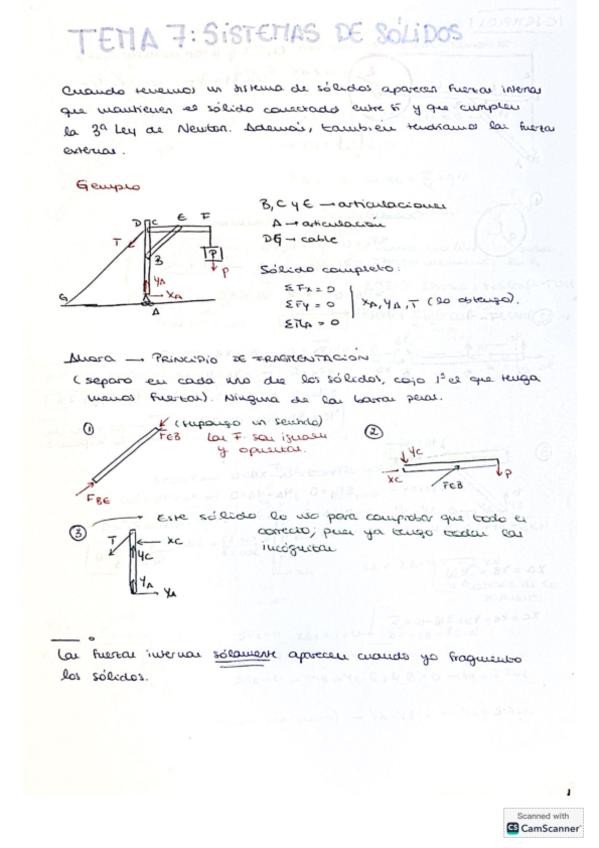 TEMA 7: SISTEMAS DE SÓLIDOS
Cuando tenemos un sistema de sólidos aparecen fuerzas internas
que mantienen el sólido conectado entre sí y que cumplen
la 3ª Ley de Newton. Además, también tendríamos las fuerzas
externas.
Ejemplo
D C E F
T
B
P
P
YA
XA
G
A
B, C y E → articulaciones
A → articulación
DG → cable
Sólido completo:
ΣFx = 0
ΣFy = 0
ΣMA = 0
XA, YA, T (lo obtengo).
Ahora → PRINCIPIO DE FRAGMENTACIÓN
(separo en cada uno de los sólidos, cojo 1º el que tenga
menos fuerzas). Ninguna de las barras pesa.
① (supongo un sentido)
FEB Las F. son iguales
y opuestas.
FBE
②
YC
XC
FEB
P
③ Este sólido lo uso para comprobar que todo es
correcto; pues ya tengo todas las
incógnitas
T
XC
YC
YA
XA
Las fuerzas internas sólamente aparecen cuando yo fragmento
los sólidos.
1
Scanned with
CS CamScanner